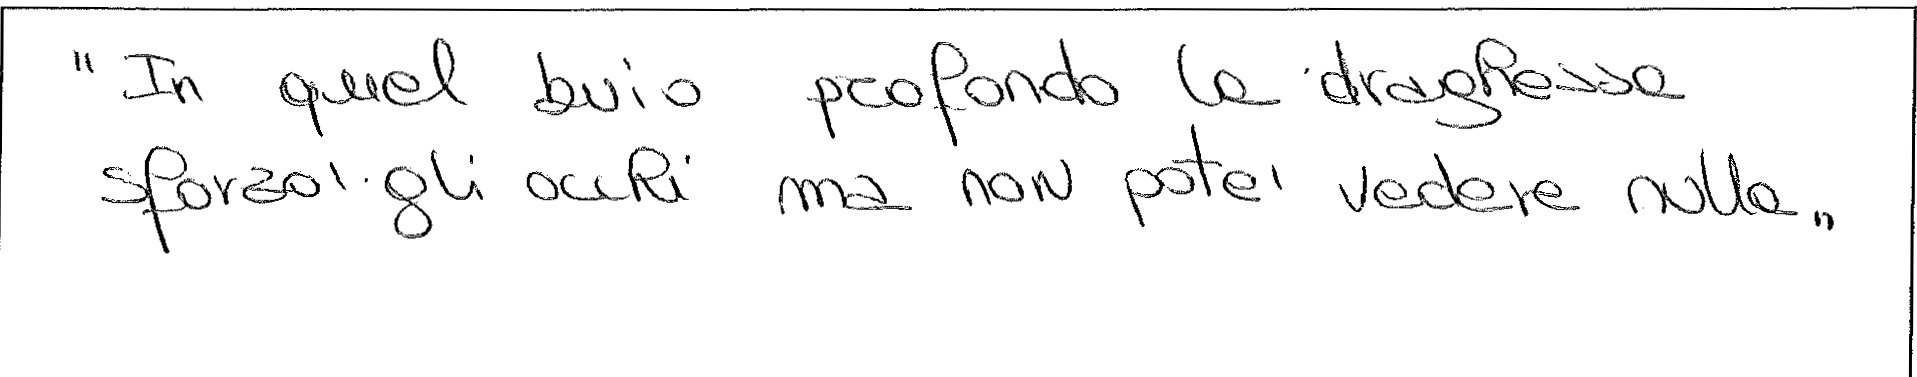 "In quel buio profondo la draghessa
sforzai gli occhi ma non potei vedere nulla„